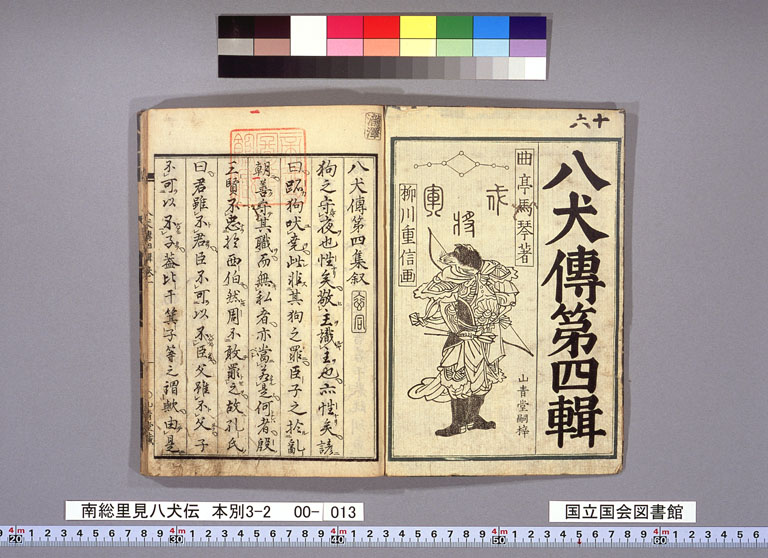 十六
八犬傳第四輯
曲亭馬琴著
柳川重信画
山青堂嗣梓
八犬傳第四集叙
狗之守夜也性矣敬主識主也亦性矣諺
曰跖狗吠堯此非其狗之罪臣子之於亂
朝善守其職而無私者亦當若是何者殷
王賢不忠於西伯然周不敢罪之故孔氏
曰君雖不君臣不可以不臣父雖不父子
不可以不子蓋比干箕子等之謂歟由是
南総里見八犬伝 本別3-2 00- 013
国立国会図書館